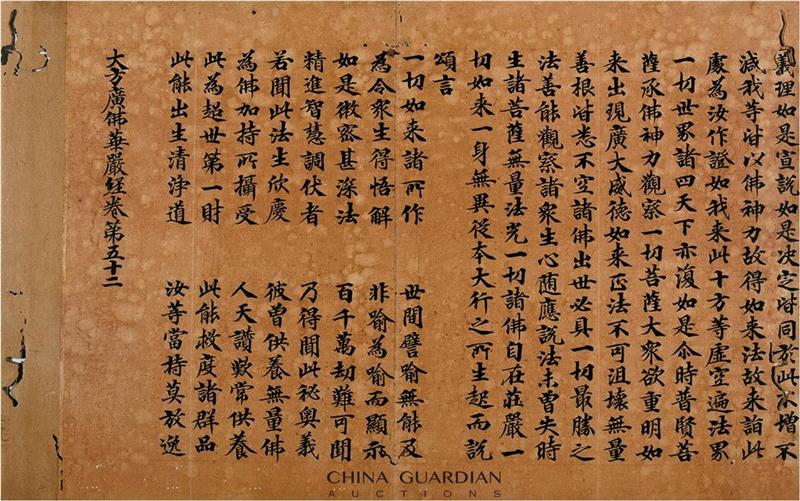 義理如是宣說如是决定皆同於此不增不
減我等皆以佛神力故得如来法故来詣此
處為汝作證如我来此十方等虛空遍法界
一切世界諸四天下亦復如是尒時普賢菩
薩承佛神力觀察一切菩薩大衆欲重明如
来出現廣大威德如来正法不可沮壞無量
善根皆悉不空諸佛出世必具一切最勝之
法善能觀察諸衆生心随應說法未曾失時
生諸菩薩無量法光一切諸佛自在莊嚴一
切如来一身無異從本大行之所生起而說
頌言
一切如来諸所作 世間譬喻無能及
為令衆生得悟解 非喻為喻而顯示
如是微密甚深法 百千萬劫難可聞
精進智慧調伏者 乃得聞此秘奥義
若聞此法生欣慶 彼曽供養無量佛
為佛加持所攝受 人天讚歎常供養
此為超世第一財 此能救度諸群品
此能出生清淨道 汝等當持莫放逸
大方廣佛華嚴經卷第五十二
CHINA GUARDIAN
AUCTIONS